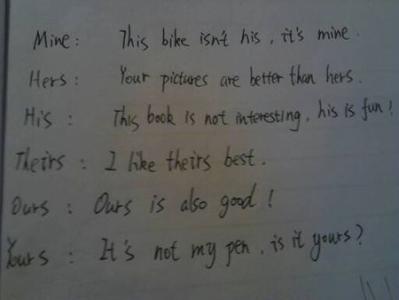 Mine: This bike isn't his, it's mine.
Hers: Your pictures are better than hers.
His: This book is not interesting, his is fun!
Theirs: I like theirs best.
Ours: Ours is also good!
Yours: It's not my pen, is it yours?